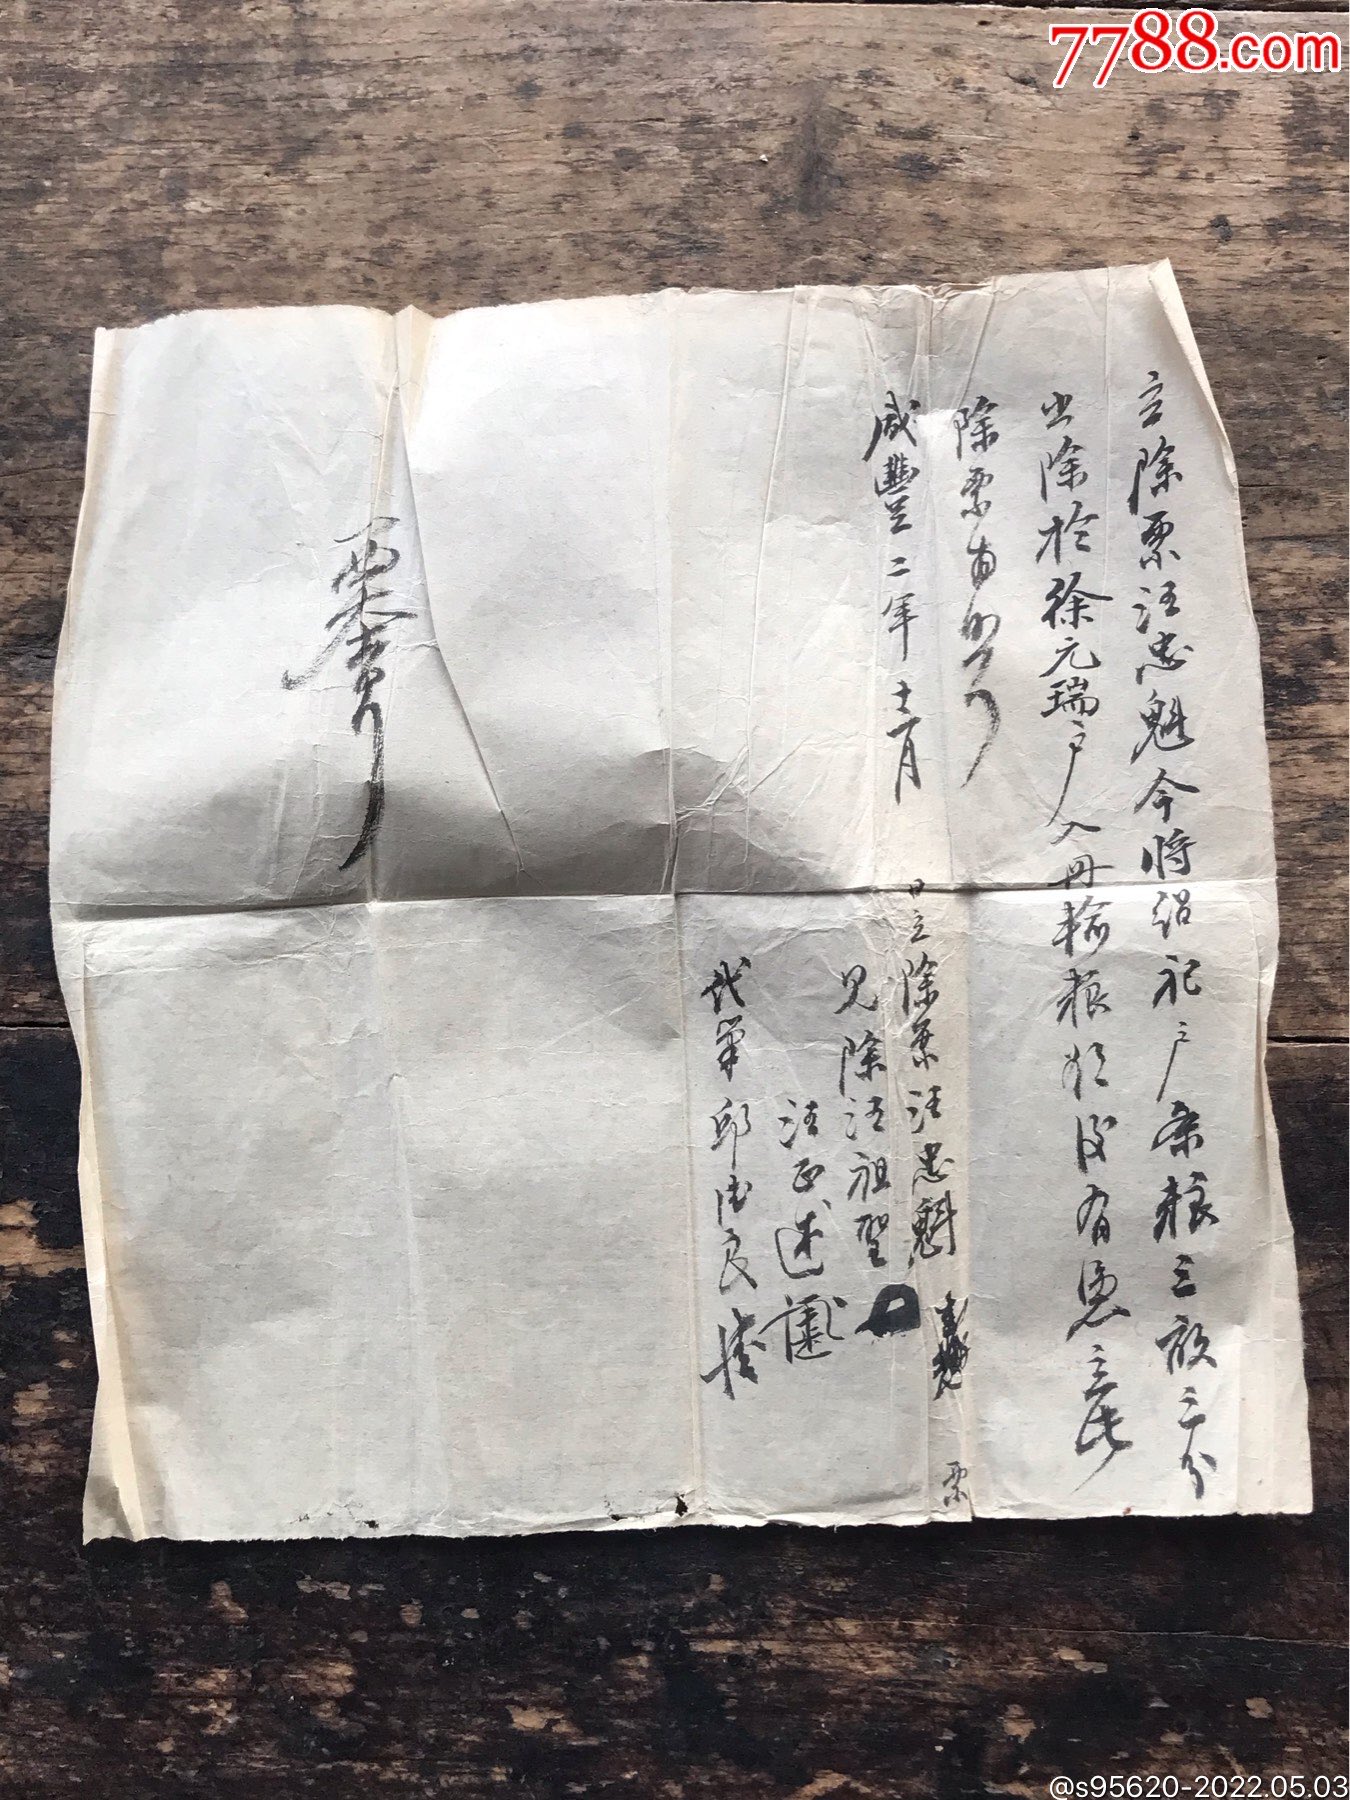 7788.com
立除票汪忠魁今将绍祀户条粮三畝三分
出除於徐元瑞户入册输粮
有凭立此
除票为照
咸豐二年十二月
日立除票汪忠魁
票
见除汪祖聖
汪正
代笔邱
良
票
@s95620-2022.05.03